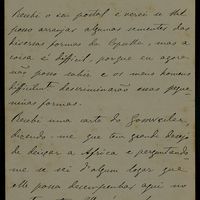 Recebi o seu postal e verei se lhe
posso arranjar algumas sementes das
diversas formas da Copaiba, mas a
coisa é difficil, porque eu agora
não posso subir e os meus homens
difficilmente descriminarão essas peque
nas formas.
Recebi uma carta do Gossweiler,
dizendo-me que tem grande desejo
de deixar a Africa e perguntando
me se sei d'algum logar que
elle possa desempenhar aqui no